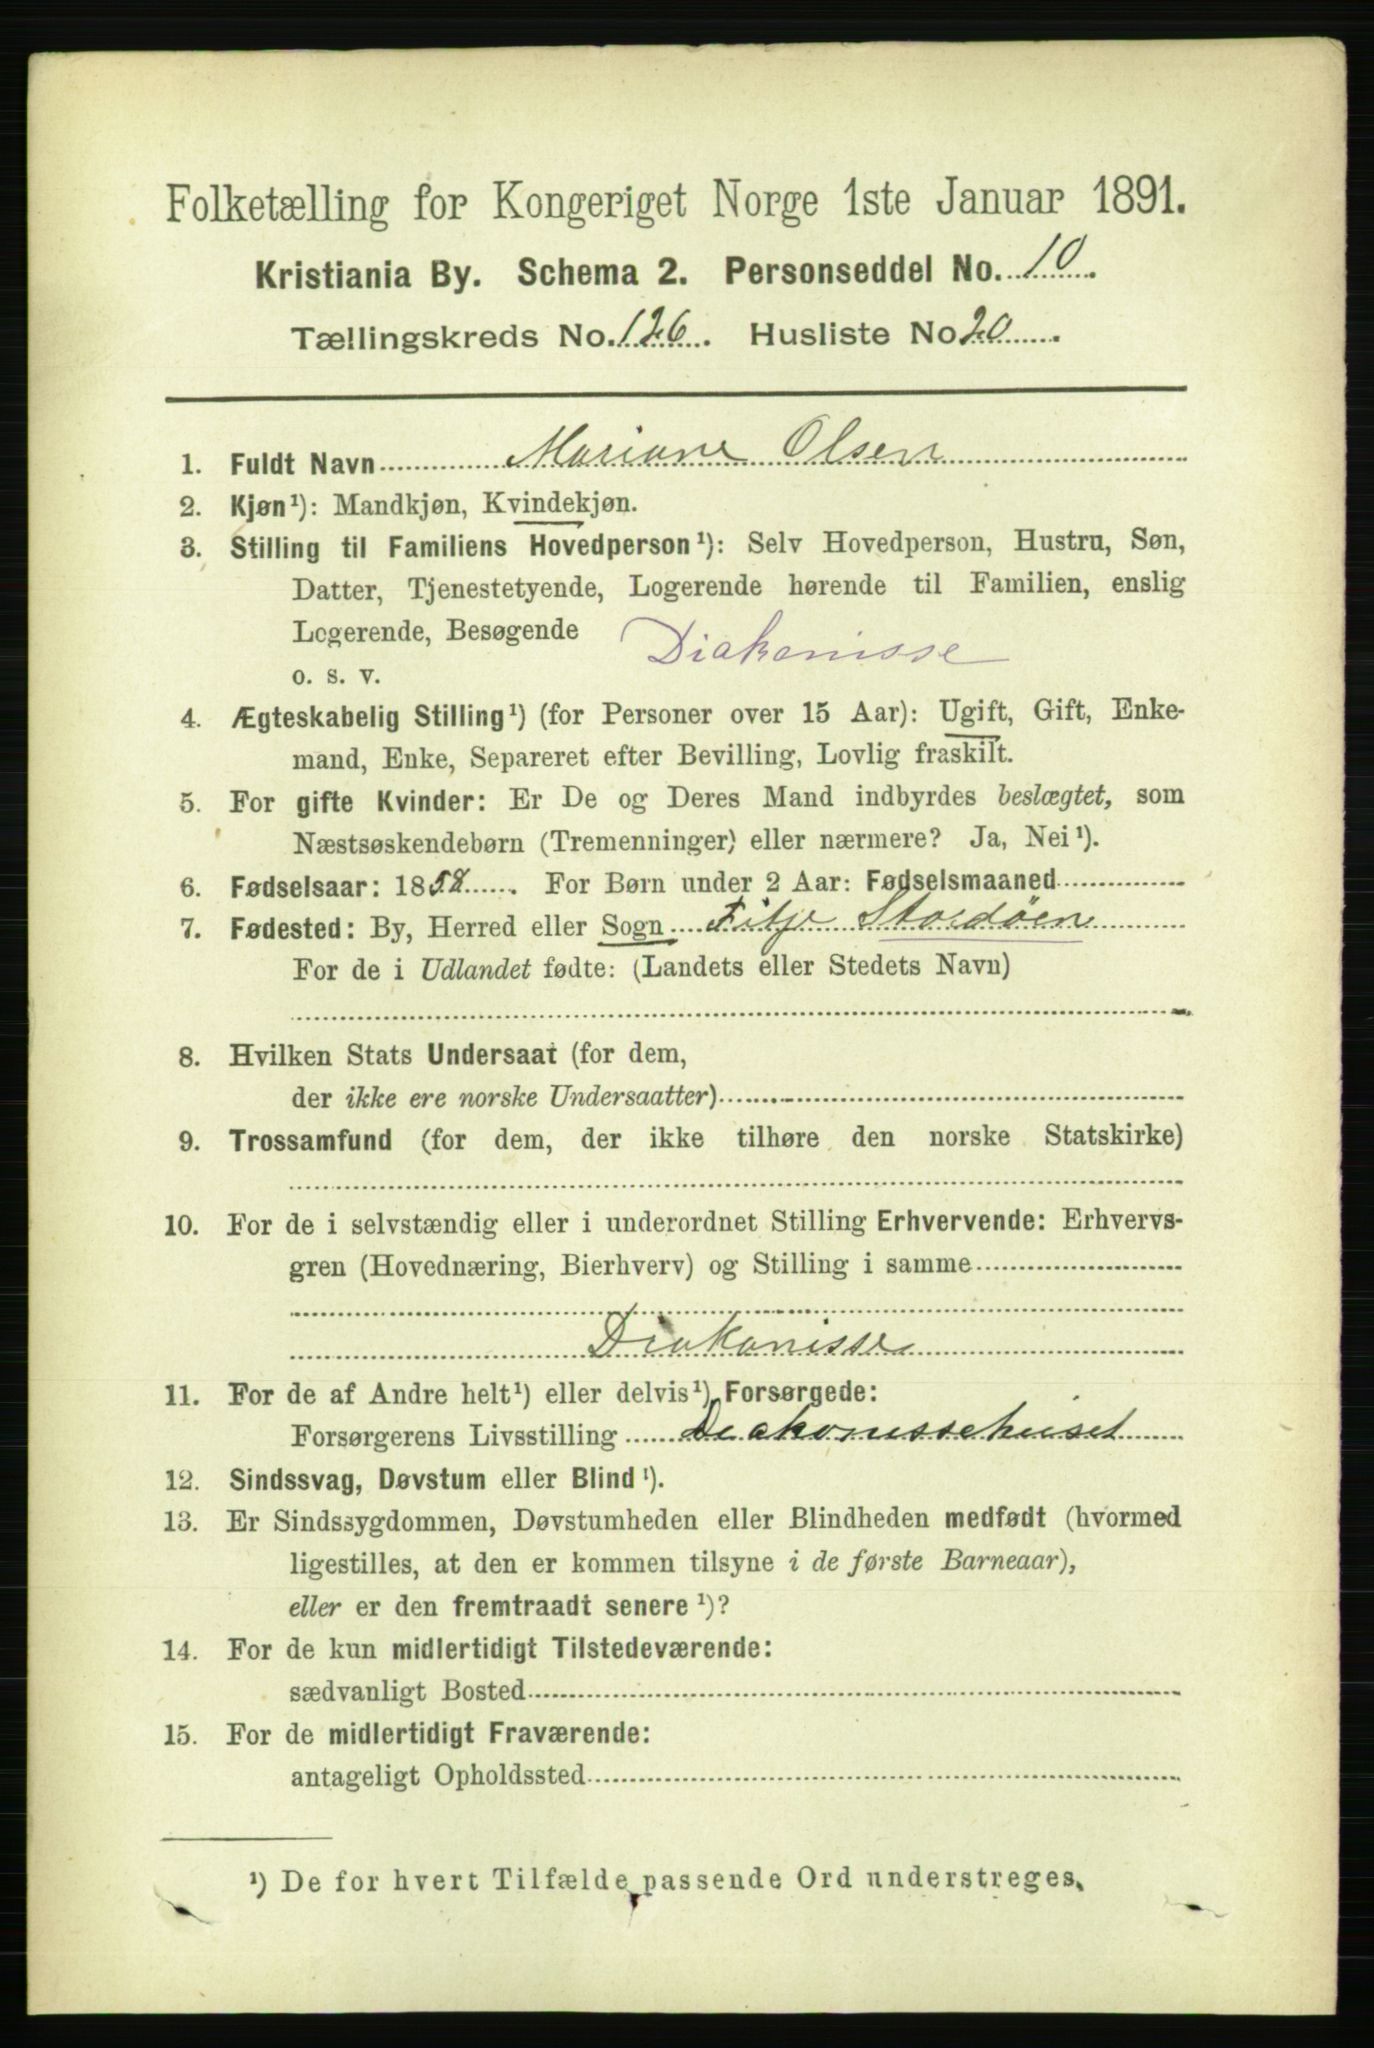 Folketælling for Kongeriget Norge 1ste Januar 1891.
Kristiania By. Schema 2. Personseddel No. 10.
Tællingskreds No. 126. Husliste No 20.
1. Fuldt Navn Mariane Olsen
2. Kjøn¹): Mandkjøn, Kvindekjøn.
3. Stilling til Familiens Hovedperson¹): Selv Hovedperson, Hustru, Søn,
Datter, Tjenestetyende, Logerende hørende til Familien, enslig
Logerende, Besøgende Diakonisse
o. s. v.
4. Ægteskabelig Stilling¹) (for Personer over 15 Aar): Ugift, Gift, Enke-
mand, Enke, Separeret efter Bevilling, Lovlig fraskilt.
5. For gifte Kvinder: Er De og Deres Mand indbyrdes beslægtet, som
Næstsøskendebørn (Tremenninger) eller nærmere? Ja, Nei¹).
6. Fødselsaar: 1858. For Børn under 2 Aar: Fødselsmaaned
7. Fødested: By, Herred eller Sogn Fitje Stordöen
For de i Udlandet fødte: (Landets eller Stedets Navn)
8. Hvilken Stats Undersaat (for dem,
der ikke ere norske Undersaatter)
9. Trossamfund (for dem, der ikke tilhøre den norske Statskirke)
10. For de i selvstændig eller i underordnet Stilling Erhvervende: Erhvervs-
gren (Hovednæring, Bierhverv) og Stilling i samme
Diakonisse
11. For de af Andre helt¹) eller delvis¹) Forsørgede:
Forsørgerens Livsstilling Diakonissehuset
12. Sindssvag, Døvstum eller Blind¹).
13. Er Sindssygdommen, Døvstumheden eller Blindheden medfødt (hvormed
ligestilles, at den er kommen tilsyne i de første Barneaar),
eller er den fremtraadt senere¹)?
14. For de kun midlertidigt Tilstedeværende:
sædvanligt Bosted
15. For de midlertidigt Fraværende:
antageligt Opholdssted
¹) De for hvert Tilfælde passende Ord understreges.